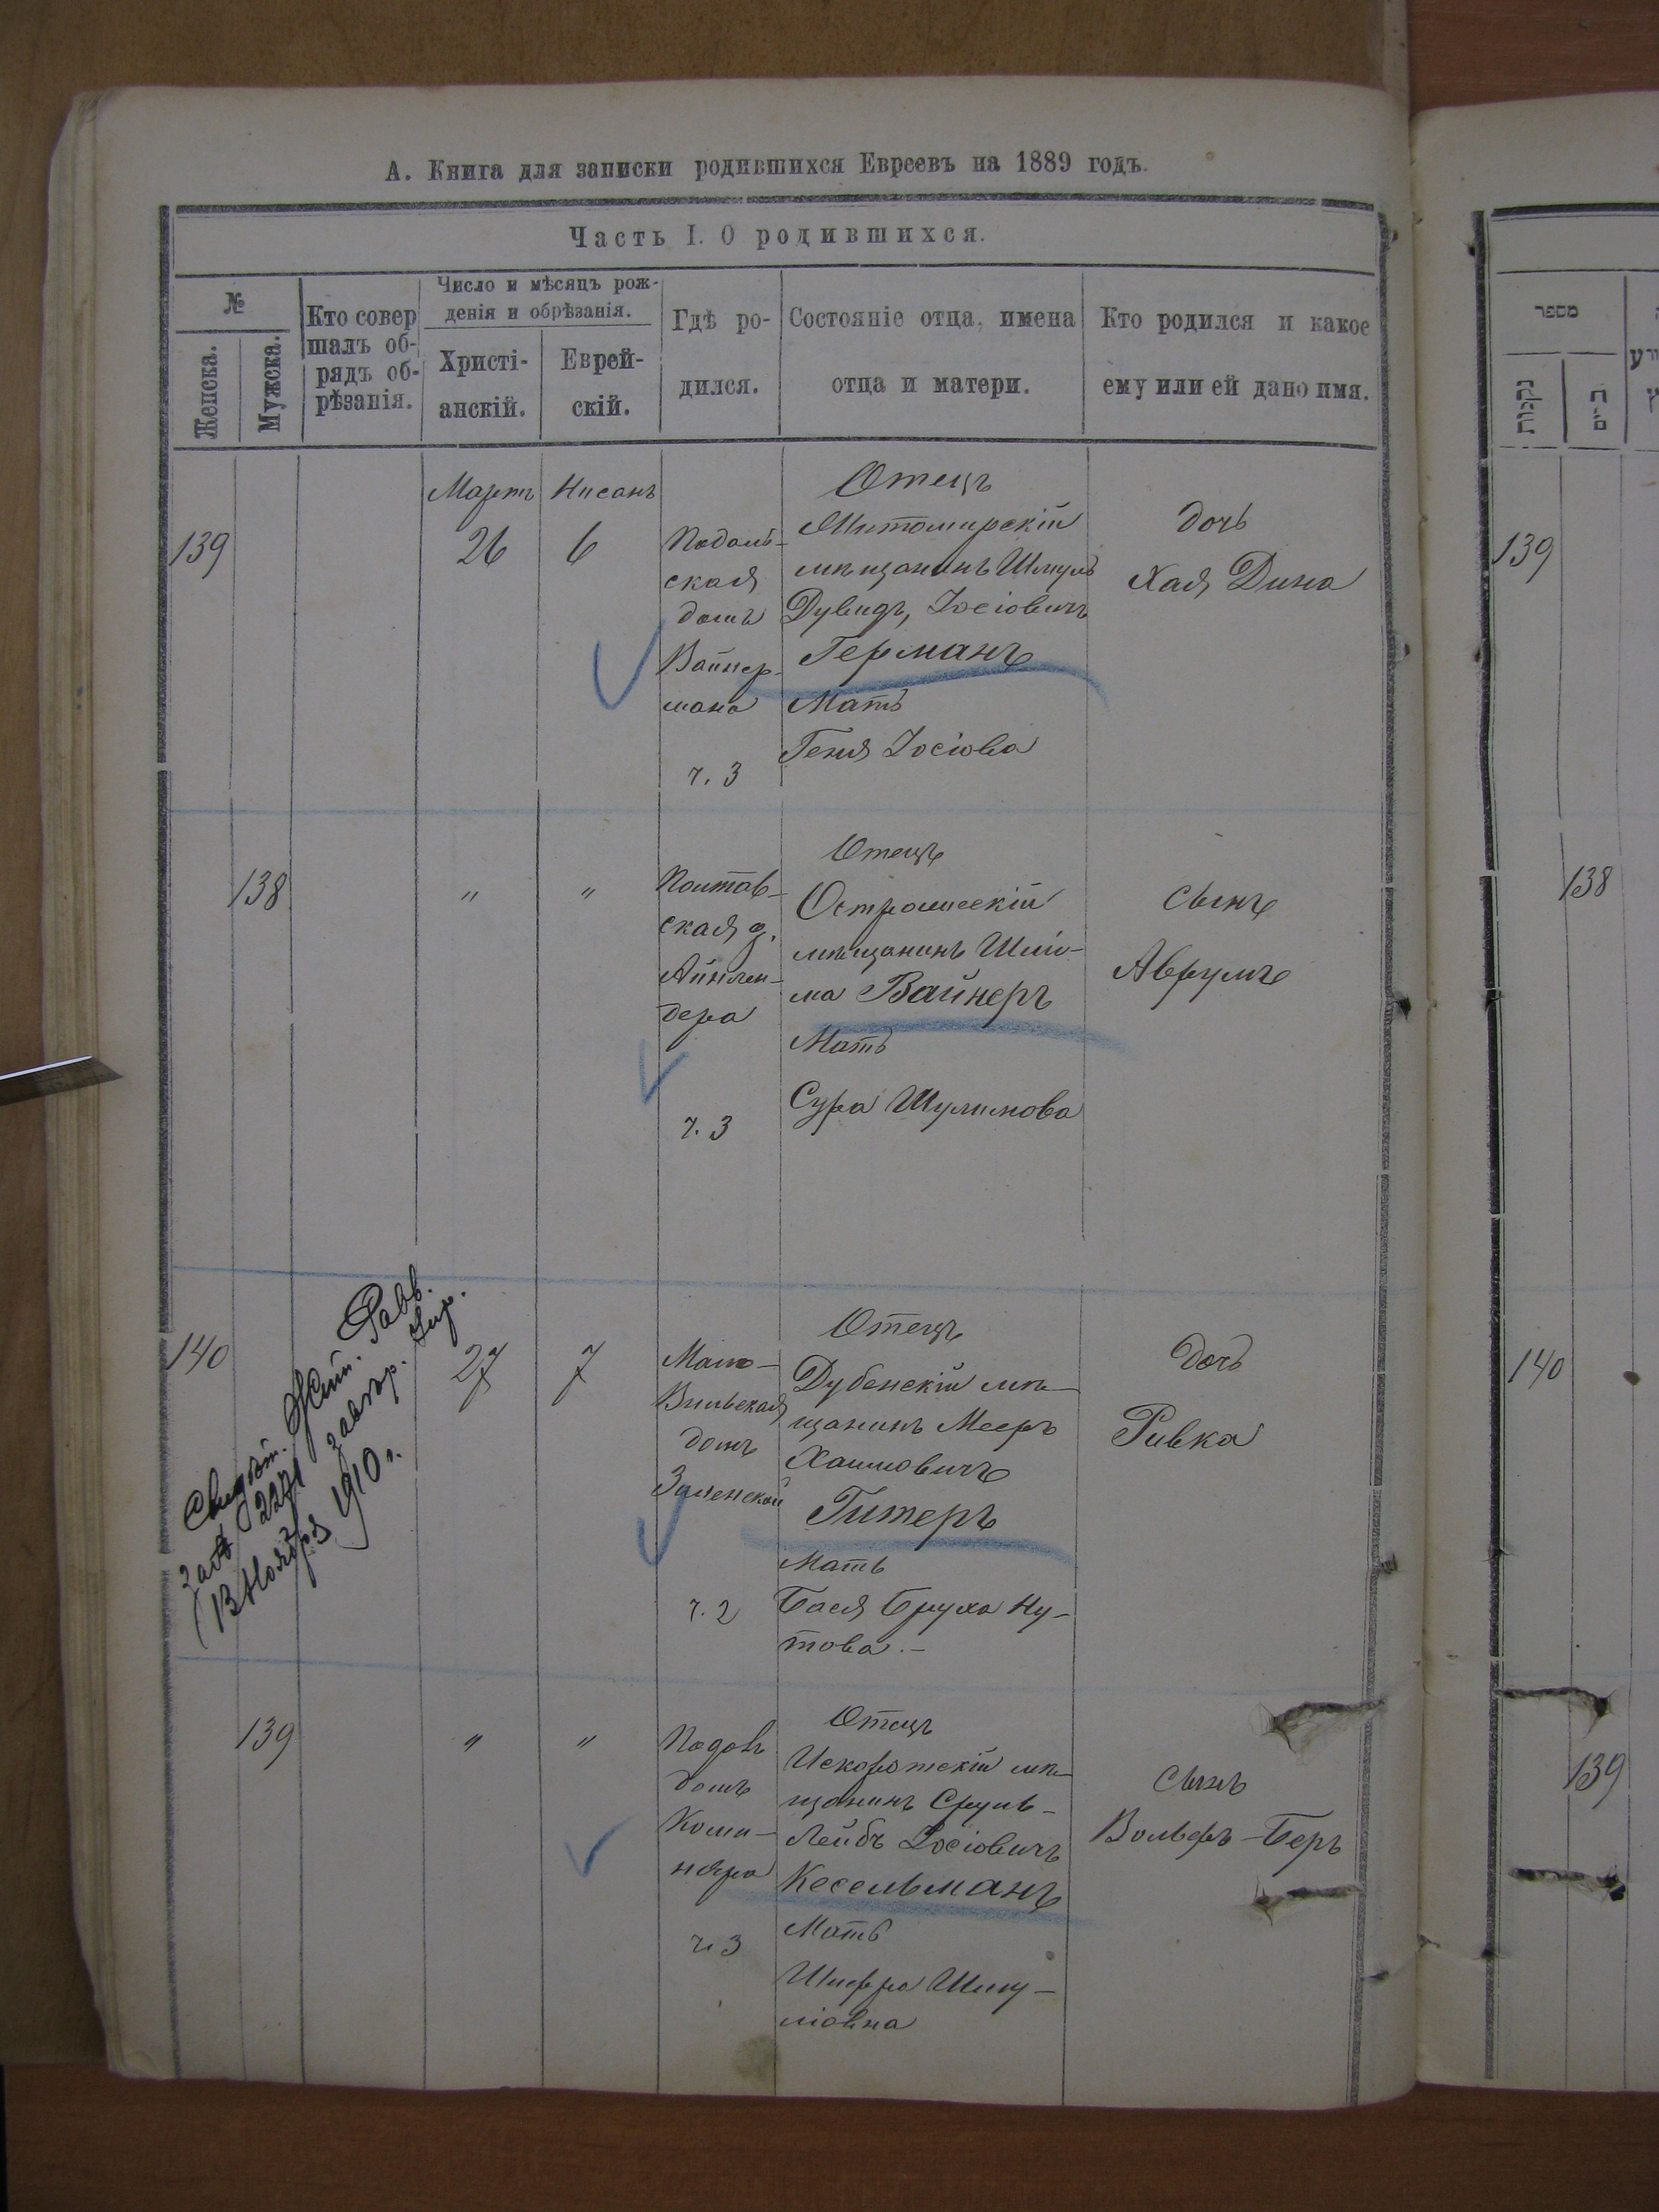 А. Книга для записки родившихся Евреевъ на 1889 годъ.
Часть I. О родившихся.
№
Женска.
Мужска.
Кто совер
шалъ об-
рядъ об-
рѣзанія.
Число и мѣсяцъ рож-
денія и обрѣзанія.
Христі-
анскій.
Еврей-
скій.
Гдѣ ро-
дился.
Состояніе отца, имена
отца и матери.
Кто родился и какое
ему или ей дано имя.
139
Мартъ
26
Нисанъ
6
Подоль-
ская
домъ
Вайнер-
мана
ч. 3
Отецъ
Житомирскій
мѣщанинъ Шмуль
Дувидъ, Іосіовичъ
Германъ
Мать
Геня Іосіова
дочь
Хая Дина
138
"
"
Полтав-
ская д.
дера
ч. 3
Отецъ
мѣщанинъ Шлі-
ма Вайнеръ
Мать
Сура Шулимова
сынъ
Аврумъ
140
Свидѣт. Жит. Равв.
за № 2271
13 Ноября 1910 г.
27
7
Мало-
Вильская
домъ
ч. 2
Отецъ
Дубенскій мѣ-
щанинъ Мееръ
Хаимовичъ
Гитеръ
Мать
Бася Бруха Ну-
това.-
дочь
Ривка
139
"
"
домъ
ч. 3
Отецъ
Искоротскій мѣ-
щанинъ Сруль-
Лейбъ Іосіовичъ
Кесельманъ
Мать
Шифра Шму-
ліовна
сынъ
Вольфъ-Беръ
מספר
נקבות
139
138
140
139